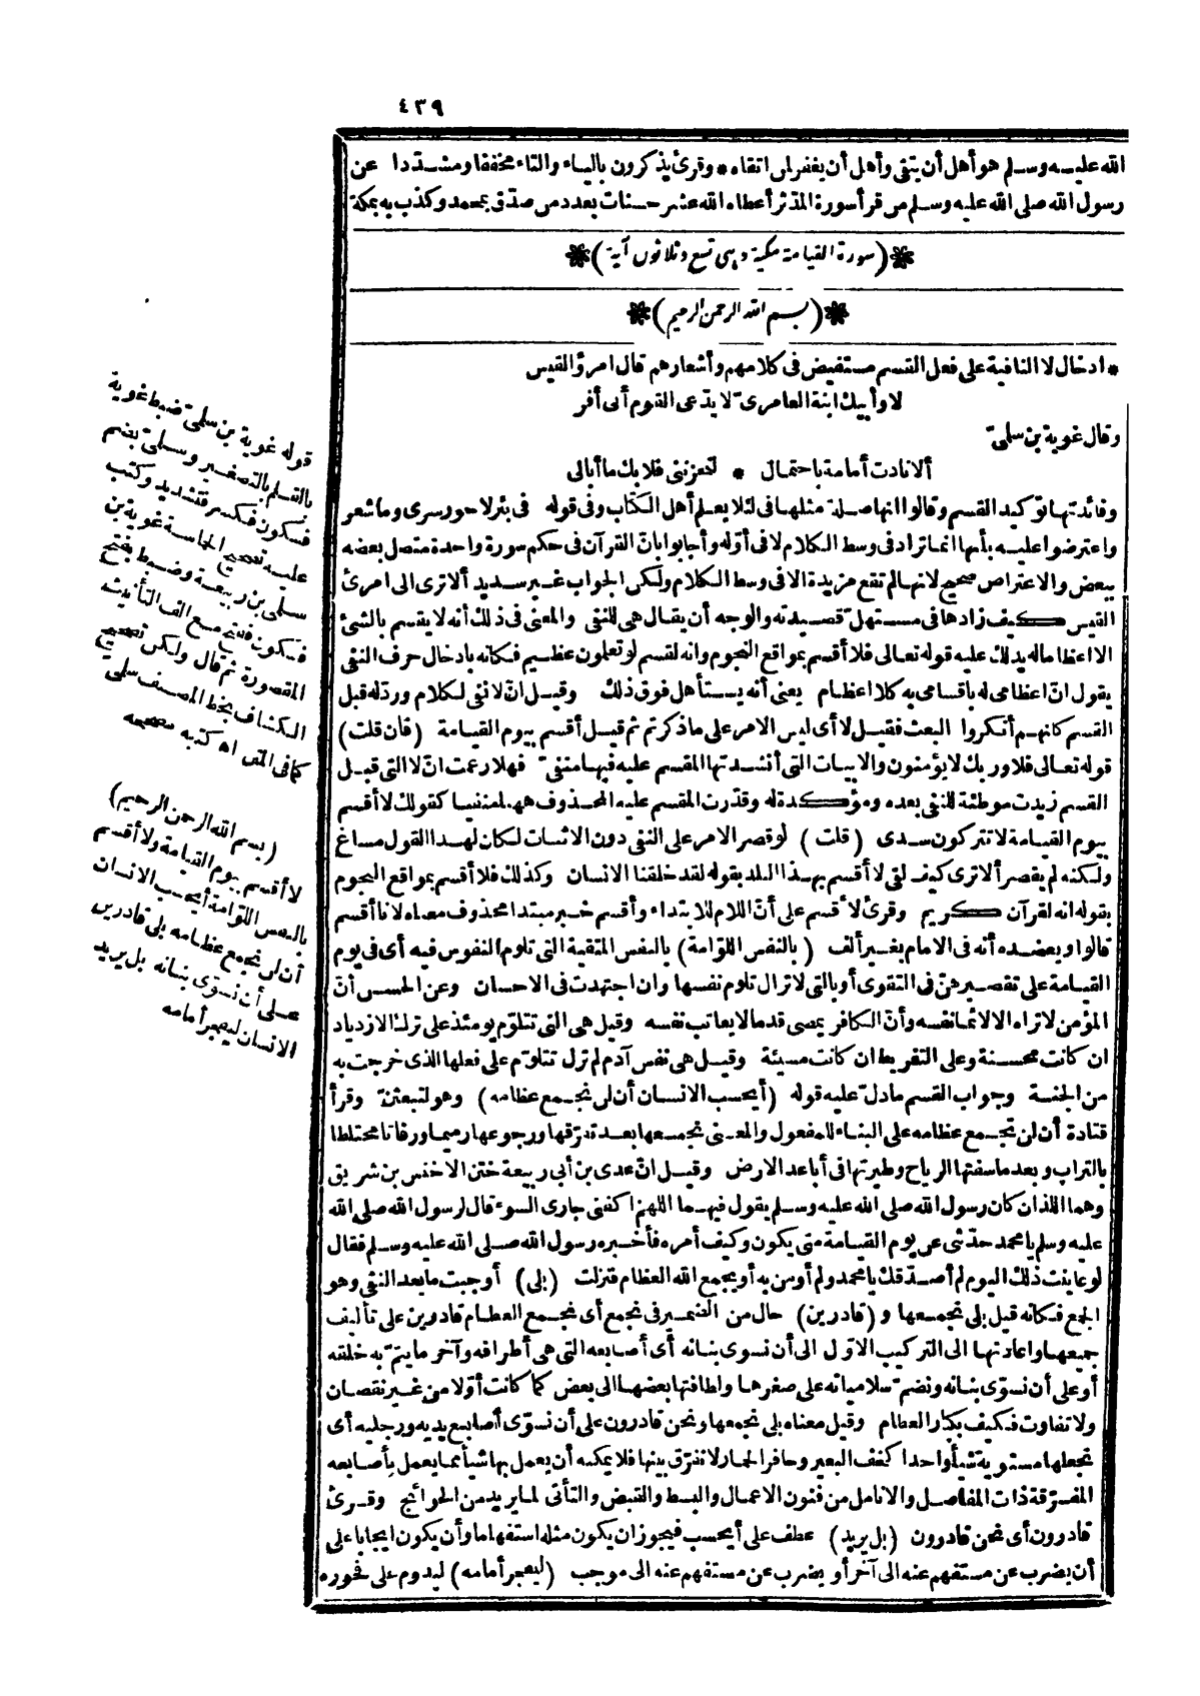 ٤٣٩
الله عليه وسلم هو أهل أن يتقى وأهل أن يغفر لمن اتقاه * وقرئ يذكرون بالياء والتاء مخففا ومشددا عن
رسول الله صلى الله عليه وسلم من قرأ سورة المدثر أعطاه الله عشر حسنات بعدد من صدق بمحمد وكذب به بمكة
(سورة القيامة مكية وهى تسع وثلاثون آية)
(بسم الله الرحمن الرحيم)
* ادخال لا النافية على فعل القسم مستفيض فى كلامهم وأشعارهم قال امرؤ القيس
لا وأبيك ابنة العامرىّ لا يدّعى القوم أنى أفر
وقال غوية بن سلمىّ
ألا نادت أمامة باحتمال * لتحزننى فلا بك ما أبالى
وفائدتها توكيد القسم وقالوا انها صلة مثلها فى لئلا يعلم أهل الكتاب وفى قوله فى بئر لا حور سرى وما شعر
واعترضوا عليه بأنها انما تزاد فى وسط الكلام لا فى أوّله وأجابوا بانّ القرآن فى حكم سورة واحدة متصل بعضه
ببعض والاعتراض صحيح لانها لم تقع مزيدة الا فى وسط الكلام ولكن الجواب غير سديد ألا ترى الى امرئ
القيس كيف زادها فى مستهل قصيدته والوجه أن يقال هى للنفى والمعنى فى ذلك أنه لا يقسم بالشئ
الا اعظاما له يدلك عليه قوله تعالى فلا أقسم بمواقع النجوم وانه لقسم لو تعلمون عظيم فكانه بادخال حرف النفى
يقول انّ اعظامى له باقسامى به كلا اعظام يعنى أنه يستأهل فوق ذلك وقيل انّ لا نفى لكلام وردّ له قبل
القسم كانهم أنكروا البعث فقيل لا أى ليس الامر على ما ذكرتم ثم قيل أقسم بيوم القيامة (فان قلت)
قوله تعالى فلا وربك لا يؤمنون والابيات التى أنشدتها المقسم عليه فيها منفىّ فهلا زعمت انّ لا التى قبل
القسم زيدت موطئة للنفى بعده ومؤكدة له وقدّرت المقسم عليه المحذوف ههنا منفيا كقولك لا أقسم
بيوم القيامة لا تتركون سدى (قلت) لو قصر الامر على النفى دون الاثبات لكان لهذا القول مساغ
ولكنه لم يقصر ألا ترى كيف لقى لا أقسم بهذا البلد بقوله لقد خلقنا الانسان وكذلك فلا أقسم بمواقع النجوم
بقوله انه لقرآن كريم وقرئ لا قسم على أنّ اللام للابتداء وأقسم خبر مبتدا محذوف معناه لانا أقسم
قالوا ويعضده أنه فى الامام بغير ألف (بالنفس اللوّامة) بالنفس المتقية التى تلوم النفوس فيه أى فى يوم
القيامة على تقصيرهنّ فى التقوى أو بالتى لا تزال تلوم نفسها وان اجتهدت فى الاحسان وعن الحسن أنّ
المؤمن لا تراه الا لائما نفسه وأنّ الكافر يمضى قدما لا يعاتب نفسه وقيل هى التى تتلوّم يومئذ على ترك الازدياد
ان كانت محسنة وعلى التفريط ان كانت مسيئة وقيل هى نفس آدم لم تزل تتلوّم على فعلها الذى خرجت به
من الجنة وجواب القسم ما دلّ عليه قوله (أيحسب الانسان أن لن نجمع عظامه) وهو لتبعثنّ وقرأ
قتادة أن لن تجمع عظامه على البناء للمفعول والمعنى نجمعها بعد تفرّقها ورجوعها رميما ورفاتا مختلطا
بالتراب وبعد ما سفتها الرياح وطيرتها فى أباعد الارض وقيل انّ عدى بن أبى ربيعة ختن الاخنس بن شريق
وهما اللذان كان رسول الله صلى الله عليه وسلم يقول فيهما اللهم اكفنى جارى السوء قال لرسول الله صلى الله
عليه وسلم يا محمد حدّثنى عن يوم القيامة متى يكون وكيف أمره فأخبره رسول الله صلى الله عليه وسلم فقال
لو عاينت ذلك اليوم لم أصدّقك يا محمد ولم أومن به أو يجمع الله العظام فنزلت (بلى) أوجبت ما بعد النفى وهو
الجمع فكانه قيل بلى نجمعها و(قادرين) حال من الضمير فى نجمع أى نجمع العظام قادرين على تأليف
جميعها واعادتها الى التركيب الاوّل الى أن نسوى بنانه أى أصابعه التى هى أطرافه وآخر ما يتمّ به خلقه
أو على أن نسوّى بنانه ونضمّ سلامياته على صغرها ولطافتها بعضها الى بعض كما كانت أوّلا من غير نقصان
ولا تفاوت فكيف بكبار العظام وقيل معناه بلى نجمعها ونحن قادرون على أن نسوّى أصابع يديه ورجليه أى
نجعلها مستوية شيأ واحدا كخف البعير وحافر الحمار لا نفرّق بينها فلا يمكنه أن يعمل بها شيأ مما يعمل بأصابعه
المفرّقة ذات المفاصل والانامل من فنون الاعمال والبسط والقبض والتأتى لما يريد من الحوائج وقرئ
قادرون أى نحن قادرون (بل يريد) عطف على أيحسب فيجوز ان يكون مثله استفهاما وأن يكون ايجابا على
أن يضرب عن مستفهم عنه الى آخر أو يضرب عن مستفهم عنه الى موجب (ليفجر أمامه) ليدوم على فجوره
قوله غوية بن سلمىّ ضبط غوية
بالقلم بالتصغير وسلمىّ بضم
فسكون فكسر فتشديد وكتب
عليه تصحيح الحماسة غوية بن
سلمى بن ربيعة وضبط بفتح
فسكون ففتح مع الف التأنيث
المقصورة ثم قال ولكن تصحيح
الكشاف بخط المصنف سلمى
كما فى المتن اه كتبه مصححه
(بسم الله الرحمن الرحيم)
لا أقسم بيوم القيامة ولا أقسم
بالنفس اللوّامة أيحسب الانسان
أن لن نجمع عظامه بلى قادرين
على أن نسوّى بنانه بل يريد
الانسان ليفجر أمامه